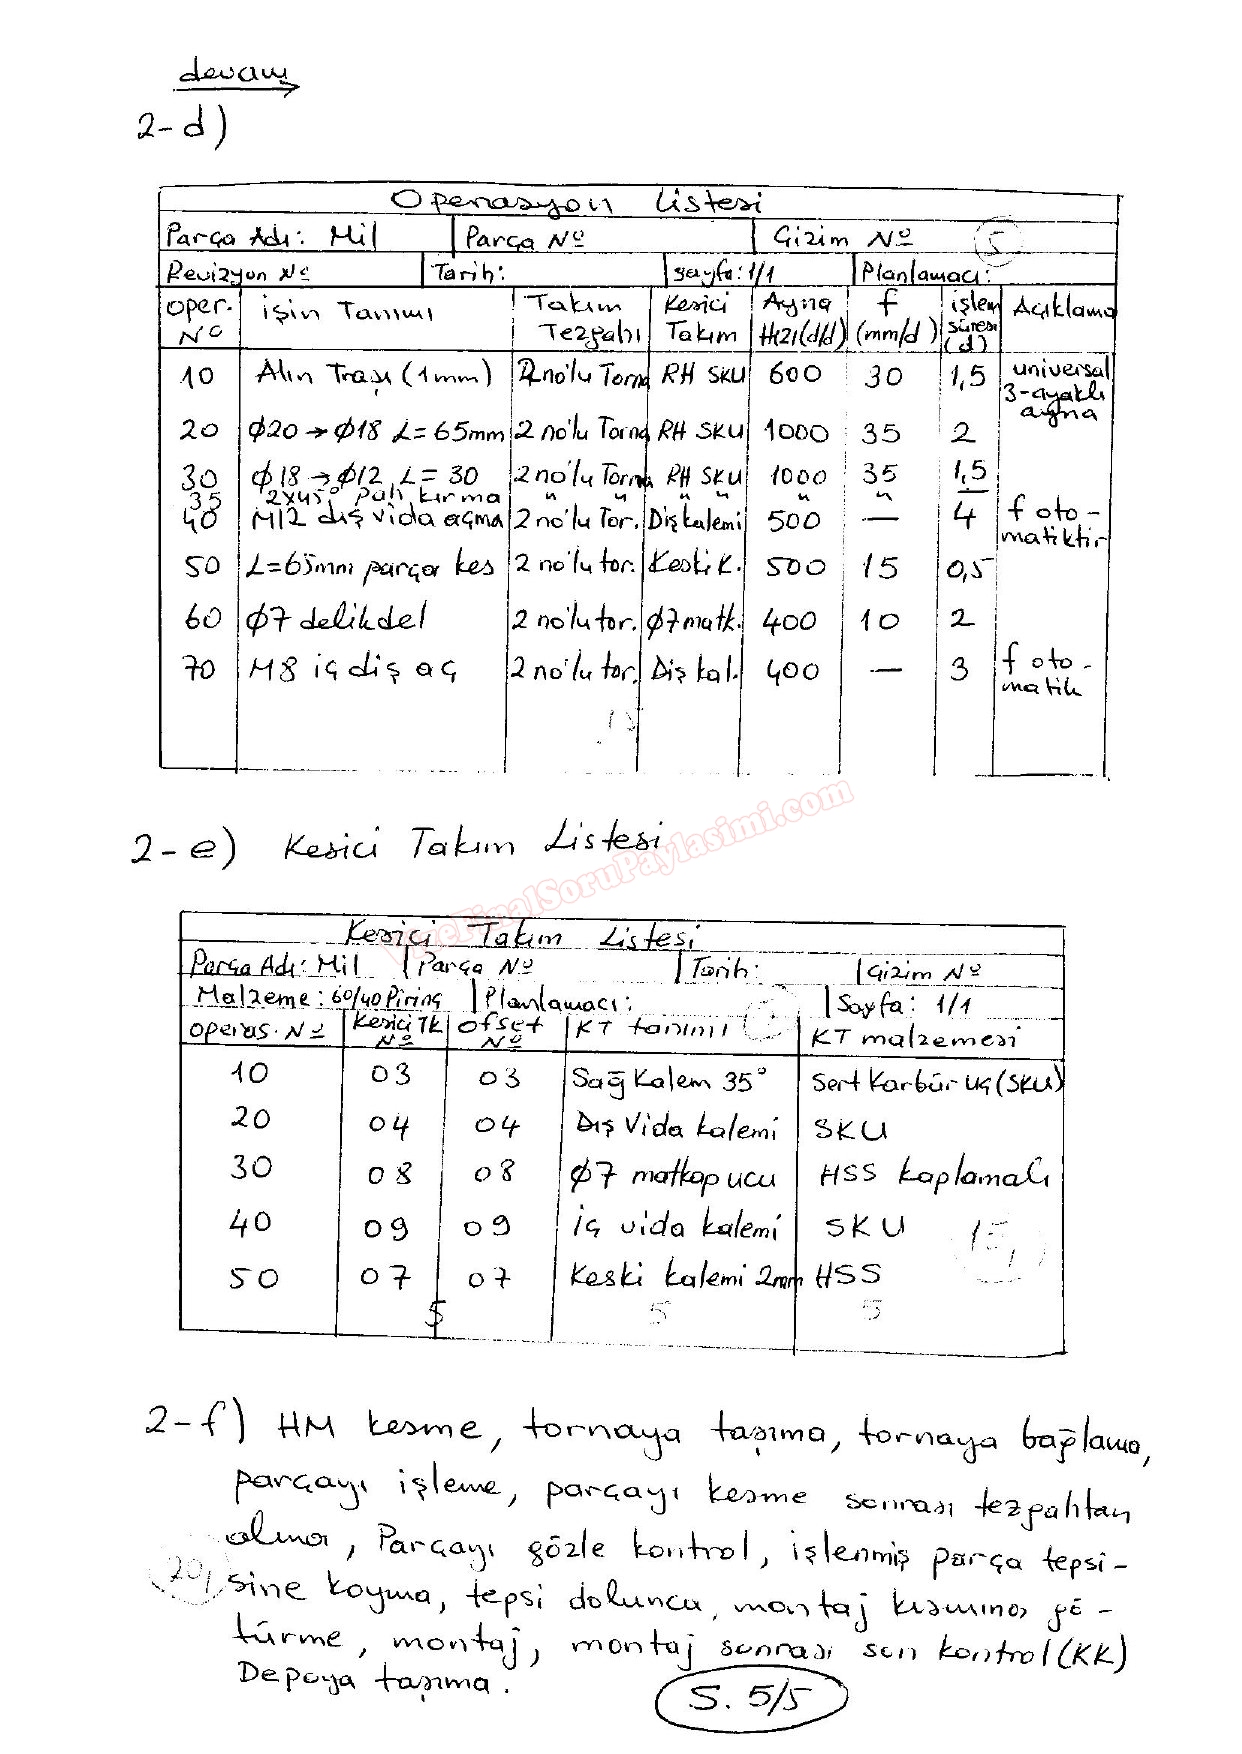 devamı
2-d)
Operasyon Listesi
Parça Adı: Mil Parça Nº Çizim Nº 5
Revizyon Nº Tarih: Sayfa: 1/1 Planlamacı:
Oper. Nº İşin Tanımı Takım Tezgahı Kesici Takım Ayna Hızı(d/d) f (mm/d) işlem süresi (d) Açıklama
10 Alın Traşı (1mm) 2 no'lu Torna RH SKU 600 30 1,5 universal 3-ayaklı ayna
20 Ø20→Ø18 L=65mm 2 no'lu Torna RH SKU 1000 35 2
30 Ø18→Ø12, L=30 2 no'lu Torna RH SKU 1000 35 1,5
35 2x45° pah kırma " " " " " "
40 M12 dış vida açma 2 no'lu Tor. Diş kalemi 500 — 4 f oto-matiktir
50 L=65mm parça kes 2 no'lu tor. Keski K. 500 15 0,5
60 Ø7 delikdel 2 no'lu tor. Ø7 matk. 400 10 2
70 M8 iç diş aç 2 no'lu tor. Diş kal. 400 — 3 f oto-matik
2-e) Kesici Takım Listesi
VizeFinalSoruPaylasimi.com
Kesici Takım Listesi
Parça Adı: Mil Parça Nº Tarih: Çizim Nº
Malzeme: 60/40 Pirinç Planlamacı: Sayfa: 1/1
Operas. Nº Kesici Tk Nº Ofset Nº KT tanımı KT malzemesi
10 03 03 Sağ Kalem 35° Sert Karbür uç (SKU)
20 04 04 Dış Vida kalemi SKU
30 08 08 Ø7 matkap ucu HSS kaplamalı
40 09 09 iç vida kalemi SKU
50 07 07 Keski kalemi 2mm HSS
5 5 5
15,
2-f) HM kesme, tornaya taşıma, tornaya bağlama,
parçayı işleme, parçayı kesme sonrası tezgahtan
alma, Parçayı gözle kontrol, işlenmiş parça tepsi-
20, sine koyma, tepsi dolunca, montaj kısmına gö-
türme, montaj, montaj sonrası son kontrol (KK)
Depoya taşıma.
S. 5/5